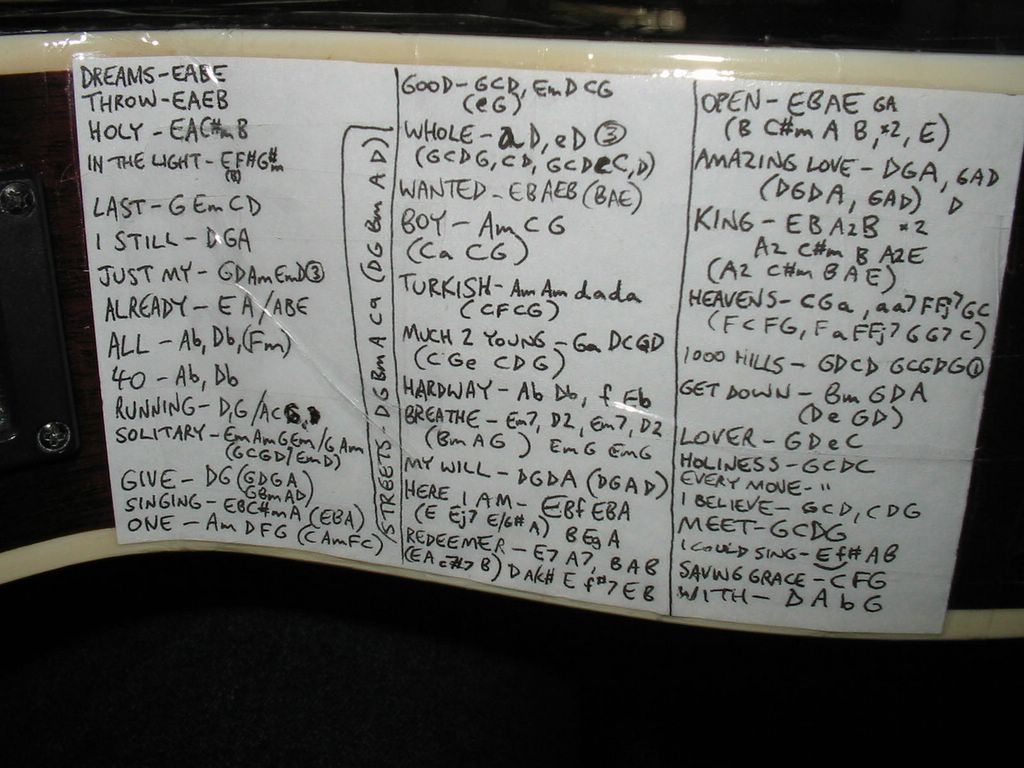 DREAMS-EABE
THROW-EAEB
HOLY - EAC#m B
IN THE LIGHT - EF#G#m
(B)
LAST-G Em CD
I STILL - DGA
JUST MY - GDAmEmD③
ALREADY - E A/ABE
ALL - Ab, Db,(Fm)
40 - Ab, Db
RUNNING- D,G/AC
SOLITARY-EmAmGEm/GAm
(GCGD/EmD)
GIVE - DG (GDGA
GBmAD)
SINGING - EBC#mA (EBA)
ONE - Am DFG (CAmFC)
STREETS - DGBmA Ca (DG Bm A D)
GOOD-GCD, EmDCG
(eG)
WHOLE - a D, eD ③
(GCDG, CD, GCDeC,D)
WANTED - EBAEB (BAE)
BOY - Am C G
(Ca CG)
TURKISH- Am Am dada
(CFCG)
MUCH 2 YOUNG - Ga DCGD
(CGe CDG)
HARDWAY - Ab Db, f Eb
BREATHE - Em7, D2, Em7, D2
(BmAG) EmG EmG
MY WILL - DGDA (DGAD)
HERE I AM - EBfEBA
(E Ej7 E/G# A) BEgA
REDEEMER - E7 A7, BAB
(EA c#7 B) DA/c# E f#7 EB
OPEN - EBAE GA
(B C#m A B, *2, E)
AMAZING LOVE - DGA, GAD
(DGDA, GAD) D
KING - E B A2B *2
A2 C#m B A2E
(A2 C#m B A E)
HEAVENS- CGa, aa7FFj7GC
(FCFG, FaFFj7 GG7C)
1000 HILLS - GDCD GCGDG①
GET DOWN - Bm GDA
(De GD)
LOVER - GDeC
HOLINESS-GCDC
EVERY MOVE- "
I BELIEVE - GCD, CDG
MEET-GCDG
I COULD SING- Ef# AB
SAVING GRACE-CFG
WITH - D A b G